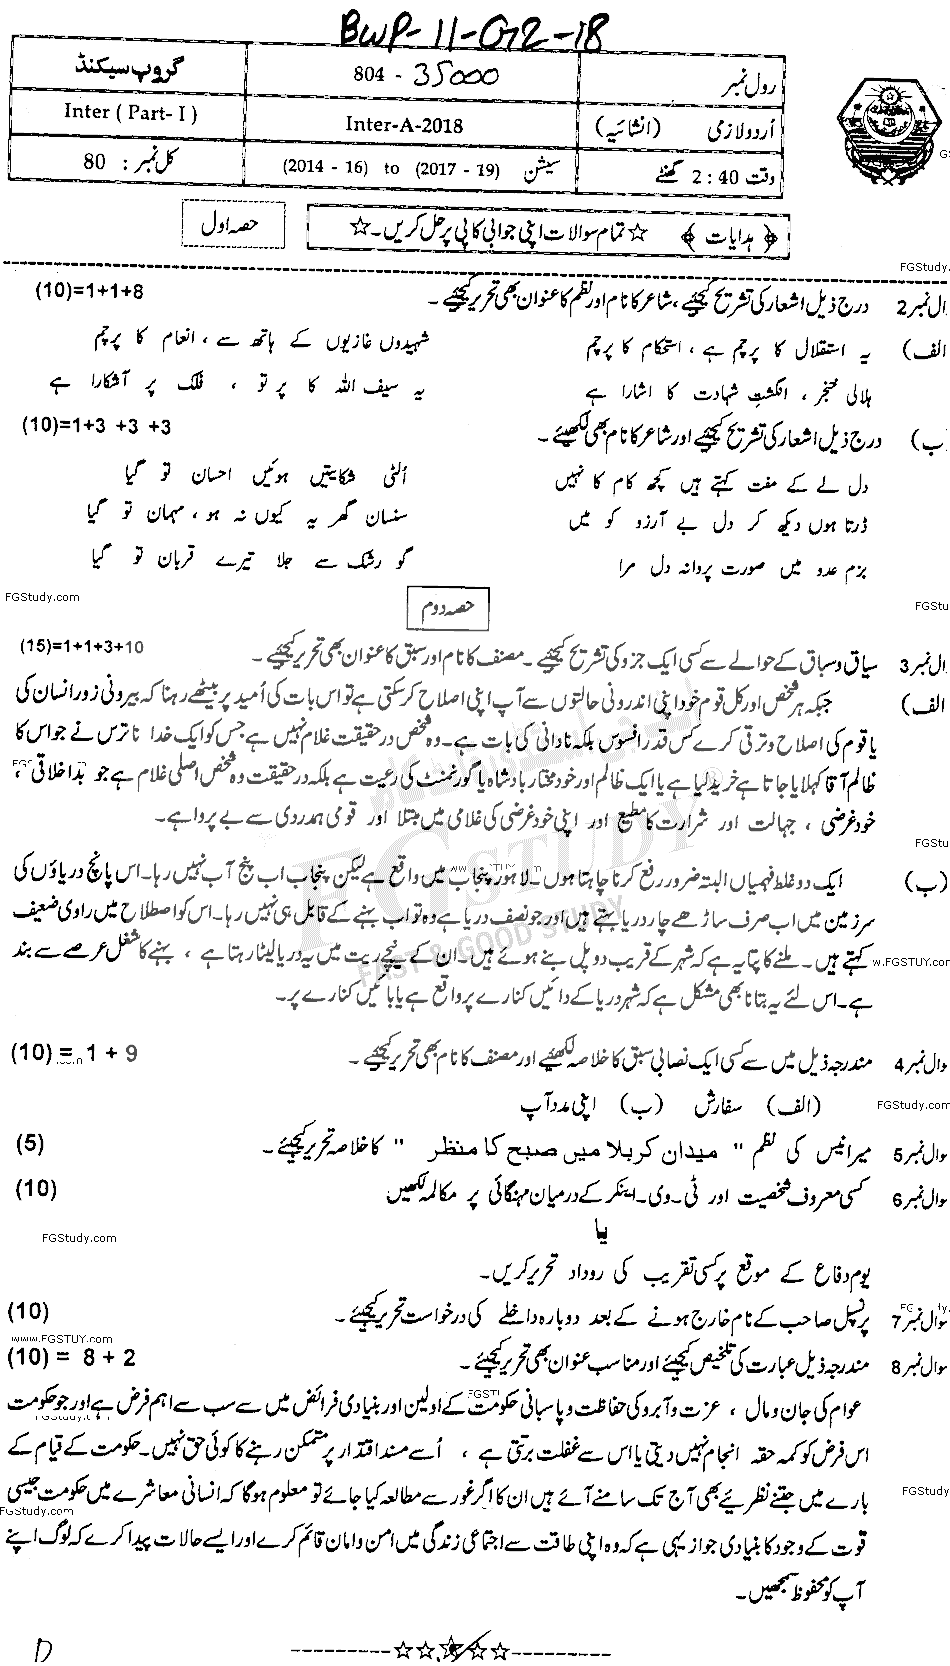 BWP-11-G2-18
رول نمبر 804 - 35000 گروپ سیکنڈ
اُردو لازمی (انشائیہ) Inter-A-2018 Inter ( Part- I )
وقت 2 : 40 گھنٹے سیشن (2014 - 16) to (2017 - 19) کل نمبر : 80
﴿ ہدایات ﴾ ☆ تمام سوالات اپنی جوابی کاپی پر حل کریں۔ ☆ حصہ اول
FGStudy.
وال نمبر 2 درج ذیل اشعار کی تشریح کیجئیے ، شاعر کا نام اور نظم کا عنوان بھی تحریر کیجئیے ۔ (10)=1+1+8
(الف) یہ استقلال کا پرچم ہے ، استحکام کا پرچم شہیدوں غازیوں کے ہاتھ سے ، انعام کا پرچم
ہلالی خنجر ، انگشتِ شہادت کا اشارا ہے یہ سیف اللہ کا پر تو ، فلک پر آشکارا ہے
(ب) درج ذیل اشعار کی تشریح کیجئیے اور شاعر کا نام بھی لکھیئے ۔ (10)=1+3 +3 +3
دل لے کے مفت کہتے ہیں کچھ کام کا نہیں اُلٹی شکایتیں ہوئیں احسان تو گیا
ڈرتا ہوں دیکھ کر دل بے آرزو کو میں سنسان گھر یہ کیوں نہ ہو ، مہمان تو گیا
بزم عدو میں صورت پروانہ دل مرا گو رشک سے جلا تیرے قربان تو گیا
FGStudy.com حصہ دوم FGStu
ال نمبر 3 سیاق و سباق کے حوالے سے کسی ایک جزو کی تشریح کیجئیے ۔ مصنف کا نام اور سبق کا عنوان بھی تحریر کیجئیے ۔ (15)=1+1+3+10
(الف) جبکہ ہر شخص اور کل قوم خود اپنی اندرونی حالتوں سے آپ اپنی اصلاح کر سکتی ہے تو اس بات کی اُمید پر بیٹھے رہنا کہ بیرونی زور انسان کی
یا قوم کی اصلاح و ترقی کرے کس قدر افسوس بلکہ نادانی کی بات ہے۔ وہ شخص در حقیقت غلام نہیں ہے جس کو ایک خدا نا ترس نے جو اس کا
ظالم آقا کہلایا جاتا ہے خرید لیا ہے یا ایک ظالم اور خود مختار بادشاہ یا گورنمنٹ کی رعیت ہے بلکہ در حقیقت وہ شخص اصلی غلام ہے جو بداخلاقی ،
خود غرضی ، جہالت اور شرارت کا مطیع اور اپنی خود غرضی کی غلامی میں مبتلا اور قومی ہمدردی سے بے پروا ہے۔
FGStu
(ب) ایک دو غلط فہمیاں البتہ ضرور رفع کرنا چاہتا ہوں۔ لاہور پنجاب میں واقع ہے لیکن پنجاب اب پنج آب نہیں رہا۔ اس پانچ دریاؤں کی
سرزمین میں اب صرف ساڑھے چار دریا بہتے ہیں اور جو نصف دریا ہے وہ تو اب بہنے کے قابل ہی نہیں رہا۔ اس کو اصطلاح میں راوی ضعیف
کہتے ہیں۔ ملنے کا پتا یہ ہے کہ شہر کے قریب دو پل بنے ہوئے ہیں۔ ان کے نیچے ریت میں یہ دریا لیٹا رہتا ہے ، بہنے کا شغل عرصے سے بند
w.FGSTUY.com
ہے۔ اس لئے یہ بتانا بھی مشکل ہے کہ شہر دریا کے دائیں کنارے پر واقع ہے یا بائیں کنارے پر۔
FG STUDY
FAST & GOOD STUDY
وال نمبر 4 مندرجہ ذیل میں سے کسی ایک نصابی سبق کا خلاصہ لکھئیے اور مصنف کا نام بھی تحریر کیجئیے ۔ (10) = 1 + 9
(الف) سفارش (ب) اپنی مدد آپ
FGStudy.com
وال نمبر 5 میر انیس کی نظم " میدان کربلا میں صبح کا منظر " کا خلاصہ تحریر کیجئیے ۔ (5)
وال نمبر 6 کسی معروف شخصیت اور ٹی۔وی۔اینکر کے درمیان مہنگائی پر مکالمہ لکھیں (10)
یا
FGStudy.com
یوم دفاع کے موقع پر کسی تقریب کی روداد تحریر کریں۔
سوال نمبر 7 پرنسپل صاحب کے نام خارج ہونے کے بعد دوبارہ داخلے کی درخواست تحریر کیجئیے ۔ (10)
www.FGSTUY.com
سوال نمبر 8 مندرجہ ذیل عبارت کی تلخیص کیجئیے اور مناسب عنوان بھی تحریر کیجئیے ۔ (10) = 8 + 2
عوام کی جان و مال ، عزت و آبرو کی حفاظت و پاسبانی حکومت کے اولین اور بنیادی فرائض میں سے سب سے اہم فرض ہے اور جو حکومت
اس فرض کو کمہ حقہ انجام نہیں دیتی یا اس سے غفلت برتتی ہے ، اُسے مسند اقتدار پر متمکن رہنے کا کوئی حق نہیں۔ حکومت کے قیام کے
بارے میں جتنے نظرئیے بھی آج تک سامنے آئے ہیں ان کا اگر غور سے مطالعہ کیا جائے تو معلوم ہوگا کہ انسانی معاشرے میں حکومت جیسی
FGStudy
FGStudy.com
قوت کے وجود کا بنیادی جواز یہی ہے کہ وہ اپنی طاقت سے اجتماعی زندگی میں امن و امان قائم کرے اور ایسے حالات پیدا کرے کہ لوگ اپنے
آپ کو محفوظ سمجھیں۔